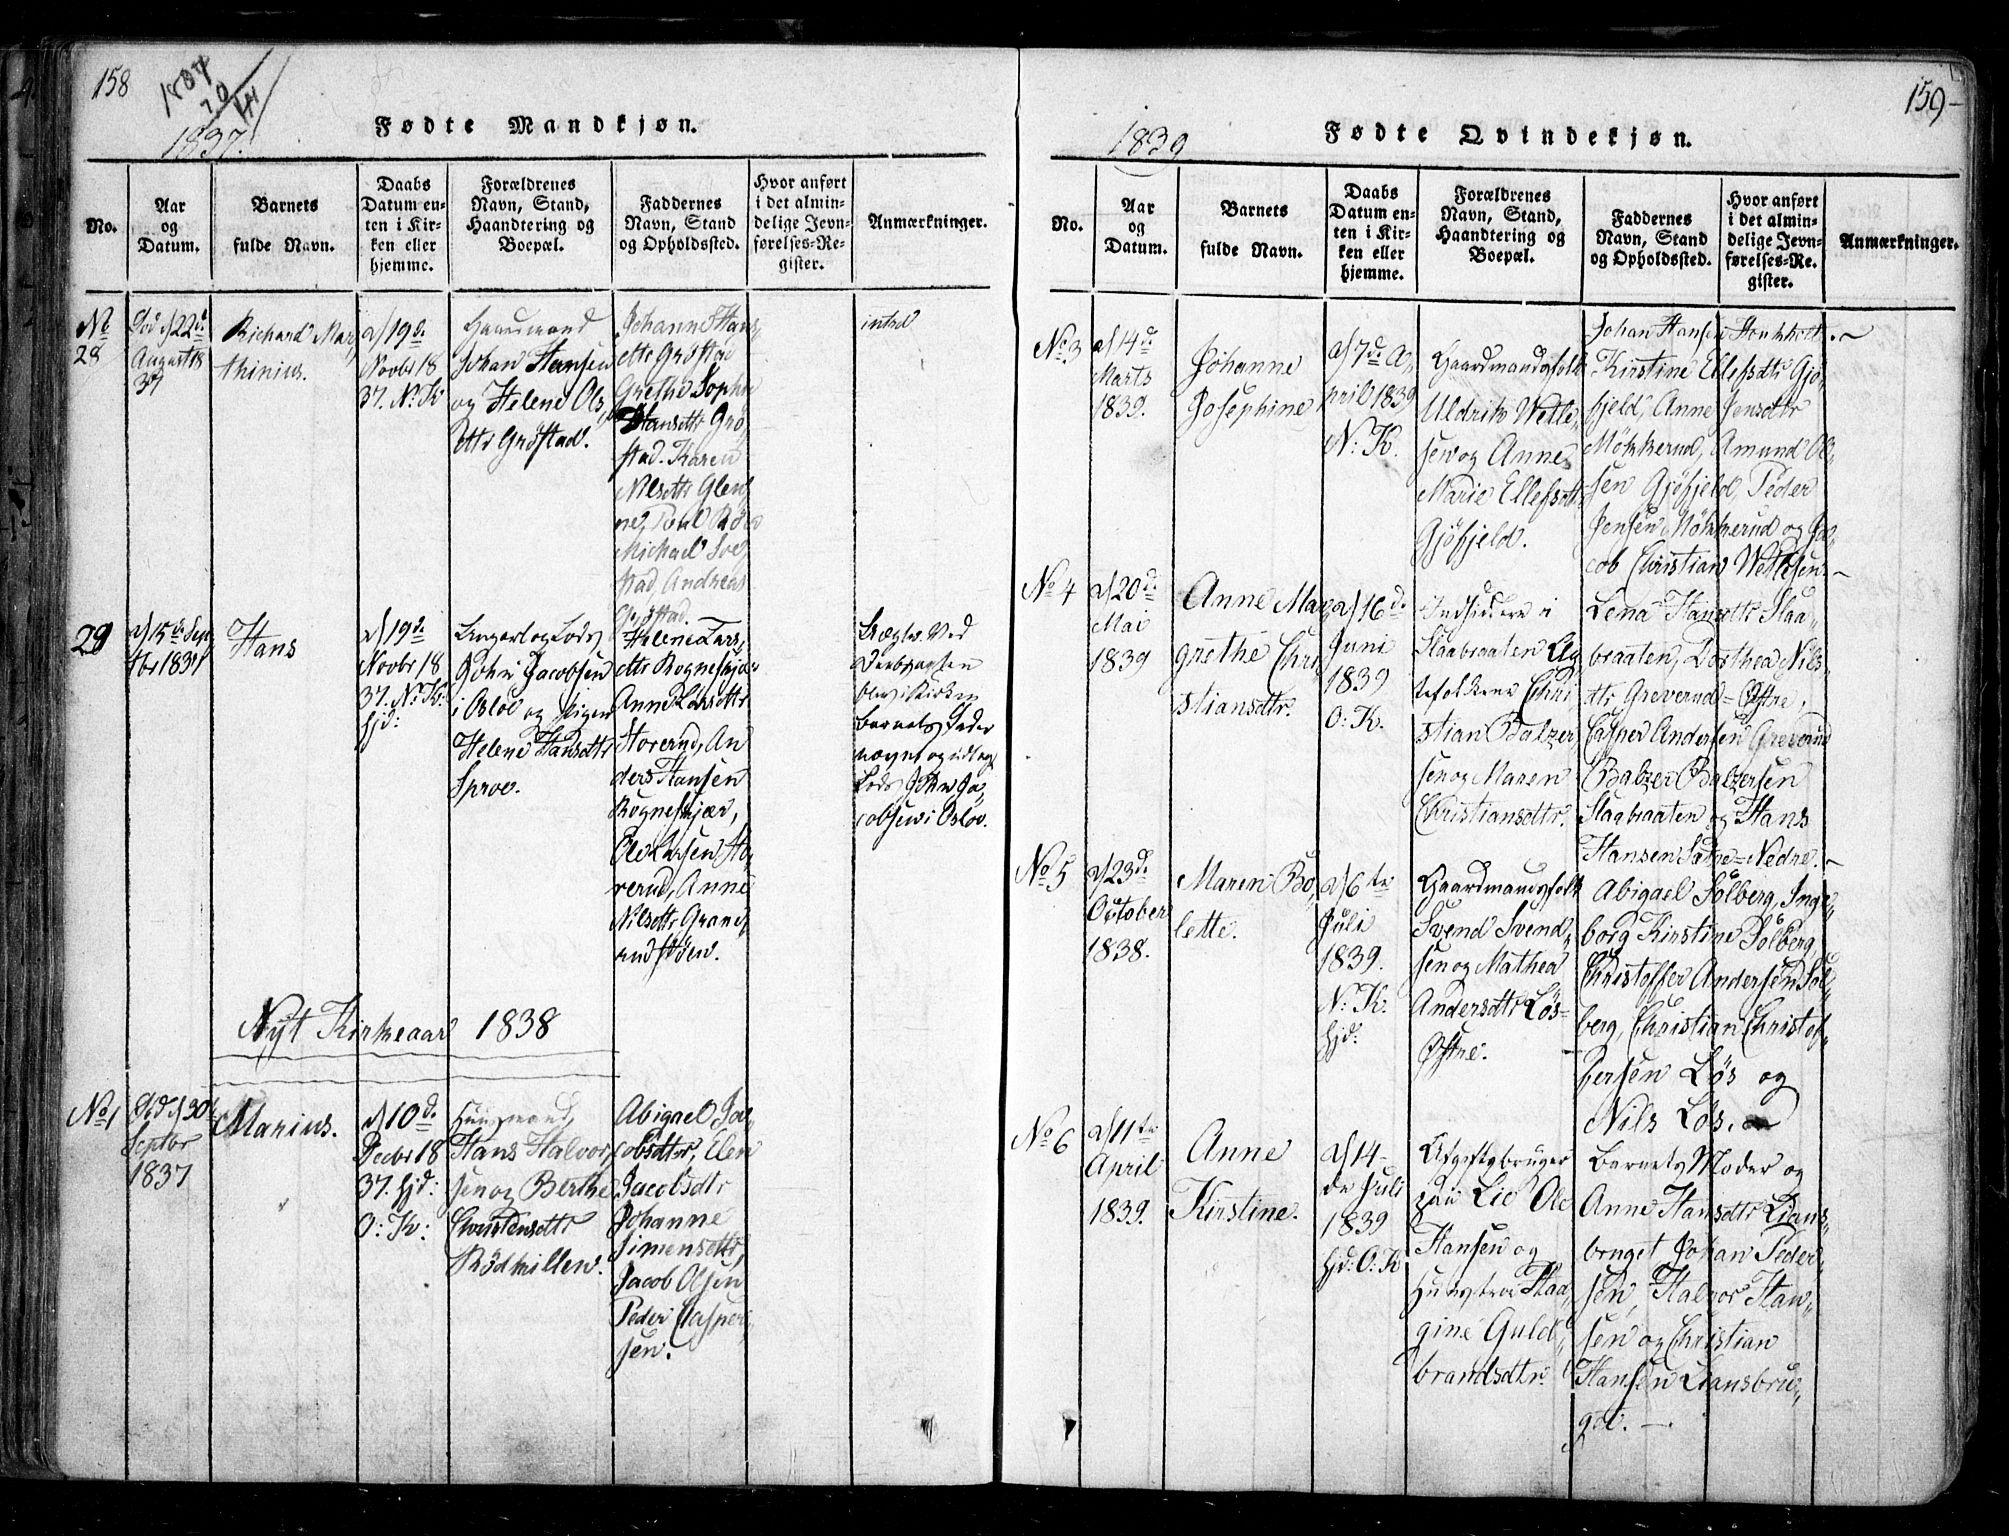 158
1837.
Fødte Mandkjøn.
No.
Aar
og
Datum.
Barnets
fulde Navn.
Daabs
Datum en-
ten i Kir-
ken eller
hjemme.
Forældrenes
Navn, Stand,
Haandtering og
Boepæl.
Faddernes
Navn, Stand
og Opholdssted.
Hvor anført
i det almin-
delige Jevn-
førelses-Re-
gister.
Anmærkninger.
No
28
22de
August 18
37
Richard Mar,,
thinius.
d/19de
Novbr 18
37. N: K
Gaardmand
Johan Hansen
og Helene Ols,,
dttr Grøstad.
Johanne Hans,,
dttr Grøstad
Grethe Sophie
Hansdttr Grø,,
stad. Karen
Nilsdttr Glen,,
ne, Poul
Michael
stad, Andreas
Grøstad.
intet
29
d/15de Sep,,
tbr 1837
Hans
d/19de
Novbr 18
37. N: K:
hjd:
Lods
John Jacobsen
i Osloe og Pigen
Helene Hansdttr
Sproe.
Helene Lars,,
dttr Rogneskjær
Anne Larsdttr
Horerud, An
ders Hansen
Rogneskjær,
Ole Larsen Ho,,
rerud, Anne
Nilsdttr Grand,,
rudsøden.
Barnets Fader
Lods John Ja,,
cobsen i Osloe.
Nyt Kirkeaar 1838
No 1
Fød d/30
Septbr
1837
Marius.
d/10de
Decbr 18
37. hjd:
O: K:
Huusmand,
Hans Halvor,,
sen og Berthe
Christensdttr
Rødkillen.
Abigael Ja,,
cobsdttr, Elen
Jacobsdtr
Johanne
Simensdttr,
Jacob Olsen
Peder Casper,,
sen.
159
1839
Fødte Qvindekjøn.
No.
Aar
og
Datum.
Barnets
fulde Navn.
Daabs
Datum en-
ten i Kir-
ken eller
hjemme.
Forældrenes
Navn, Stand,
Haandtering og
Boepæl.
Faddernes
Navn, Stand
og Opholdssted.
Hvor anført
i det almin-
delige Jevn-
førelses-Re-
gister.
Anmærkninger.
No 3
d/14de
Marts
1839.
Johanne
Josephine
d/7de A,,
pril 1839
N: K.
Gaardmandsfolk
Uldrik Wetle,,
sen og Anne
Marie Ellefsdttr
Gjøfjeld.
Johan Hansen
Kirstine Ellefsdttr Gjø,,
fjeld, Anne Jensdttr
Møkkerud, Amund Ol,,
sen Gjøfjeld, Peder
Jensen Møkkerud og Ja,,
cob Christian Wetlesen.
No 4
d/20de
Mai
1839
Anne Mar,,
grethe Chri
stiansdtr.
d/16de
Juni
1839
O: K.
Indsiddere i
Staabraaten Æg
tefolkene Chri
stian Balzer,,
sen og Maren
Christiansdttr.
Lena Hansdttr Staa,,
braaten, Dorthea Nils,,
dttr Greverud=Østre,
Casper Andersen Greverud
Balzer Balzersen
Staabraaten og Hans
Hansen Sætre=Nedre.
No 5
d/23de
October
1838.
Maren Bo,,
lette.
d/6te
Juli
1839.
N: K:
hjd:
Gaardmandsfolk
Svend Svend,,
sen og Mathea
Andersdttr Løs=
Østre.
Abigael Solberg, Inge,,
borg Kirstine Solberg,
Christoffer Andersen Sol,,
berg, Christian Christof,,
fersen Løs og
Nils Løs.
No 6
d/11te
April
1839.
Anne
Kirstine.
d/14-
de Juli
1839
hjd: O: K
Afgiftsbruger
paa Lie Ole
Hansen og
Hustroe Haa,,
gine Guld,,
brandsdtr.
Barnets Moder og
Anne Hansdttr Lians,,
bruget Johan Peder,,
sen, Halvor Han,,
sen og Christian
Hansen Liansbru,,
get.